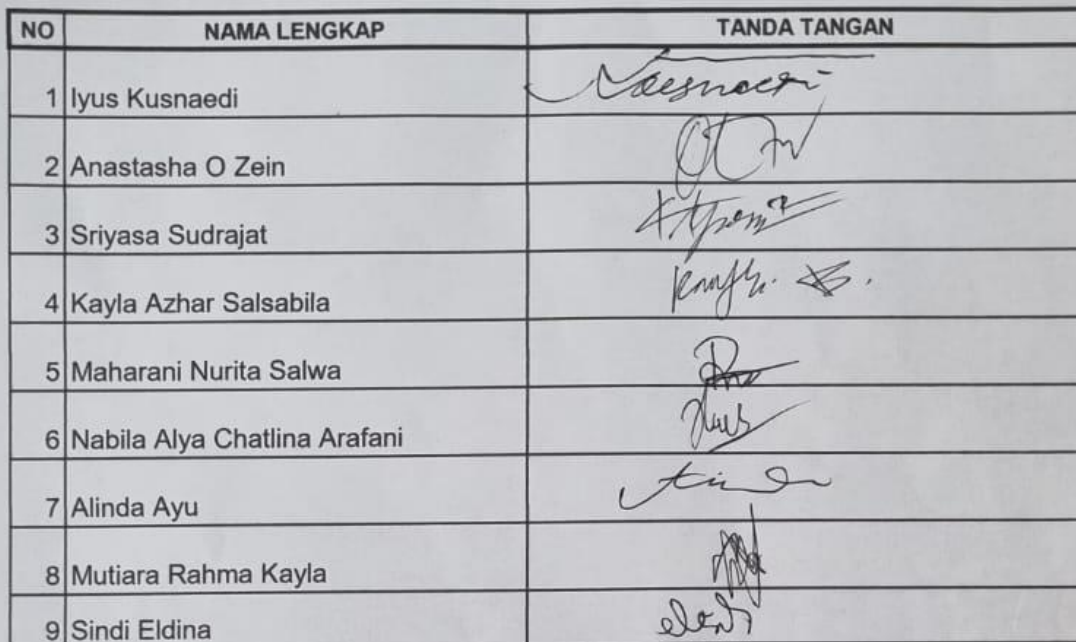 NO NAMA LENGKAP TANDA TANGAN
1 Iyus Kusnaedi
2 Anastasha O Zein
3 Sriyasa Sudrajat
4 Kayla Azhar Salsabila
5 Maharani Nurita Salwa
6 Nabila Alya Chatlina Arafani
7 Alinda Ayu
8 Mutiara Rahma Kayla
9 Sindi Eldina